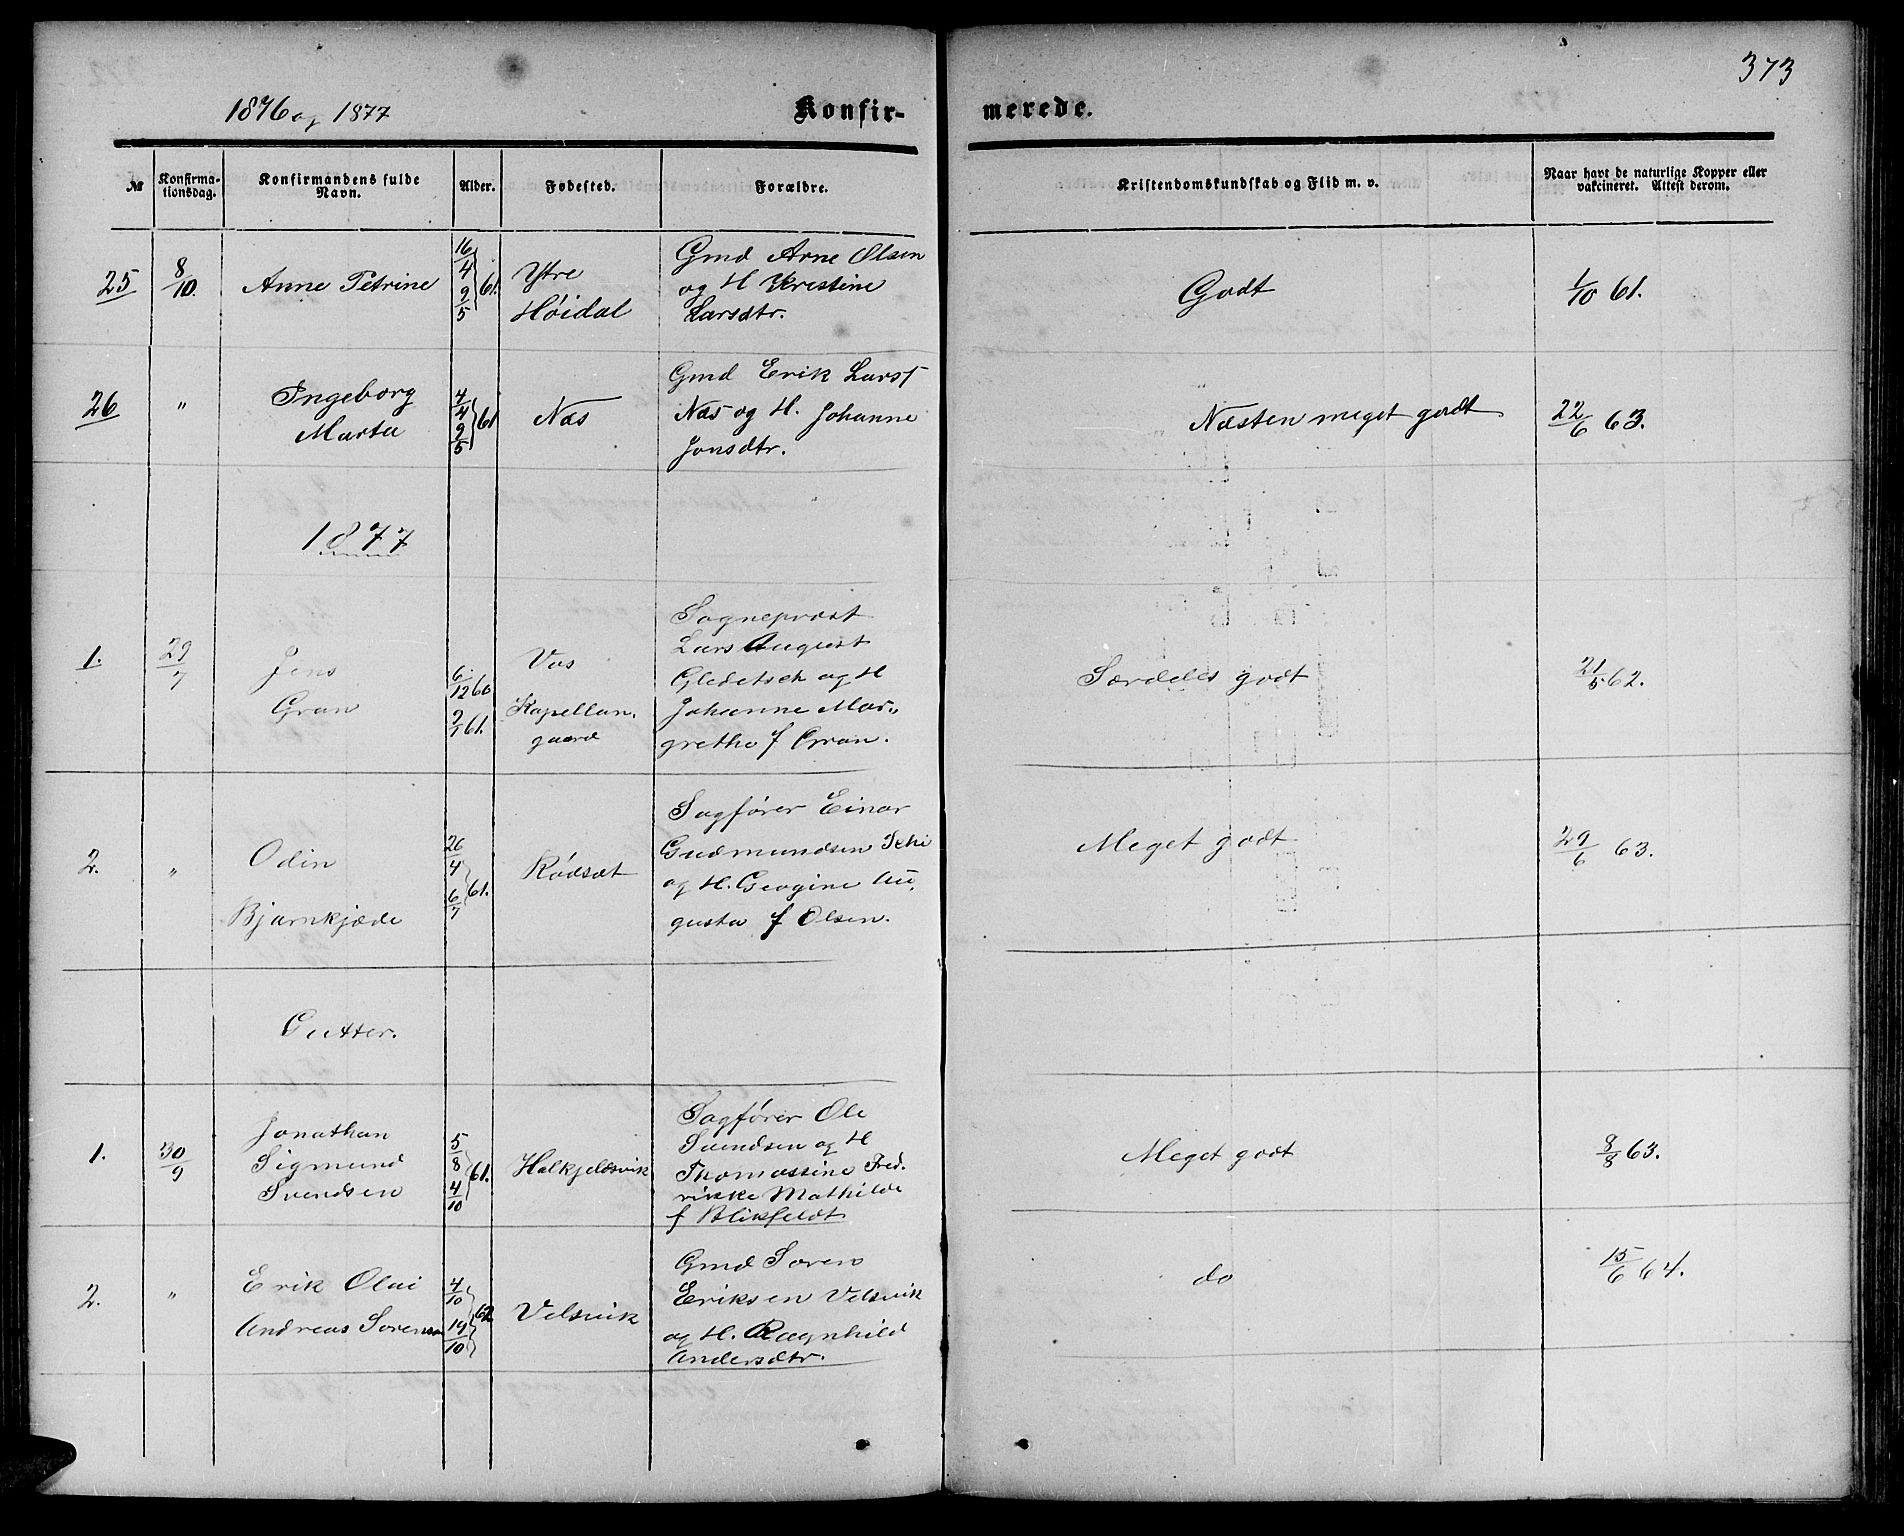 373
1876 og 1877
Konfir-
merede.
№
Konfirma-
tionsdag.
Konfirmandens fulde
Navn.
Alder.
Fødested.
Forældre.
Kristendomskundskab og Flid m. v.
Naar havt de naturlige Kopper eller
vakcineret. Attest derom.
25 8/10. Anne Petrine 16/4 9/5 61. Ytre
Høidal
Gmd Arne Olsen
og H Kristine
Larsdtr.
Godt
1/10 61.
26 " Ingeborg
Marta
4/4 9/5 61
Næs
Gmd Erik Lars
Næs og H. Johanne
Jonsdtr.
Næsten meget godt
22/6 63.
1877
1. 29/7 Jens
Gran
6/12 60
61.
Vos
Kapellan.
gaard
Sognepræst
Lars August
og H
Johanne Mar-
grethe f Gran.
Særdeles godt
21/5 62.
2. " Odin
Bjarnkjæde
26/4 6/7 61.
Rødsæt
Sagfører Einar
Gudmundsen
og H. Geogine Au,
gusta f Olsen.
Meget godt
29/6 63.
Gutter.
1. 30/9 Jonathan
Sigmund
Svendsen
5/8 4/10 61.
Halkjeldsvik
Sagfører Ole
Svendsen og H
Thomassine Fred.
rikke Mathilde
f Blikfeldt
Meget godt
8/8 63.
2. " Erik Olai
Andreas Sorensen
4/10 19/10 62
Velsvik
Gmd Soren
Eriksen Velsvik
og H. Ragnhild
Andersdtr.
do
15/6 64.